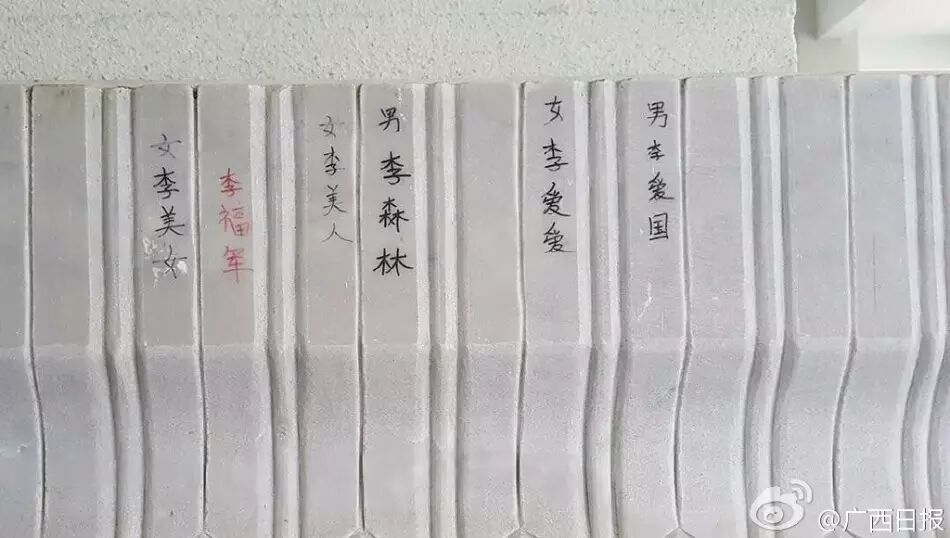 女李美女
李福军
女李美人
男李森林
女李爱爱
男李爱国
@广西日报